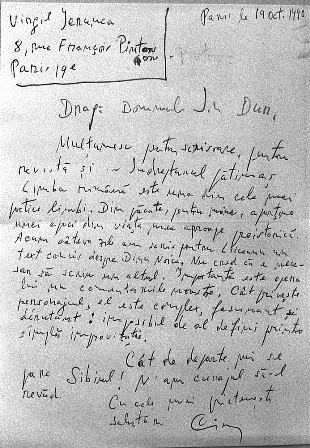 Virgil Ierunca
8, rue François Pinton
Paris 19e
Paris le 19 oct. 199
Dragă Domnule Ion Dur,
Mulțumesc pentru scrisoare, pentru
revistă și îndreptarul pătimaș
Limba română este una din cele mai
poetice limbi. Din păcate, pentru mine, aparține
unei epoci din viața mea aproape preistorică.
Acum câteva zile am scris pentru
text concis despre Dinu Noica. Nu cred că e nece-
sar să scriu un altul. Importantă este opera
lui nu comentariile noastre. Cât privește
personajul, el este complex, fascinant și
derutant: imposibil de al defini printr-o
simplă improvizație.
Cât de departe mi se
pare Sibiul! N'am curajul să-l
revăd.
Cu cele mai prietenești
salutări